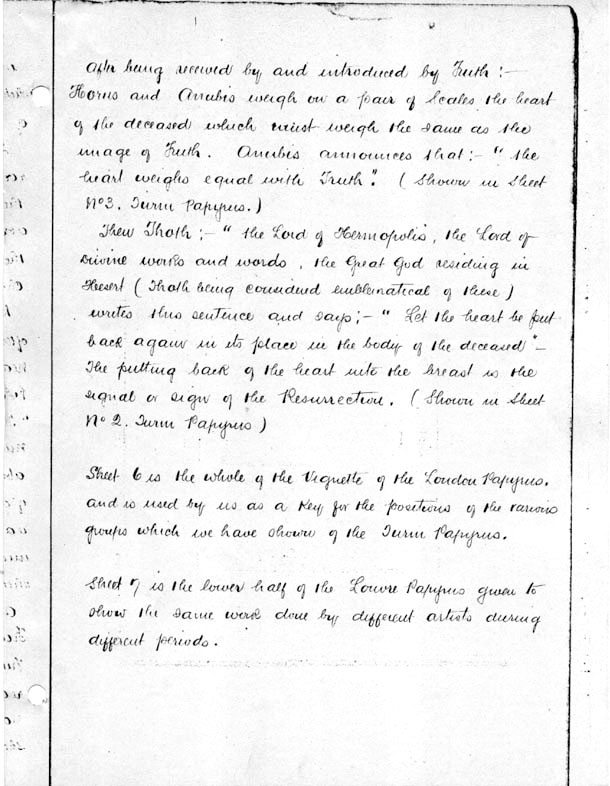 after being received by and introduced by Truth :—
Horus and Anubis weigh on a pair of Scales the heart
of the deceased which must weigh the same as the
image of Truth. Anubis announces that :— " the
heart weighs equal with Truth". ( Shown in Sheet
No 3. Turin Papyrus. )
Then Thoth :— " the Lord of Hermopolis, the Lord of
Divine works and words, the Great God residing in
Hesert ( Thoth being considered emblematical of these )
writes this sentence and says ;— " Let the heart be put
back again in its place in the body of the deceased" —
The putting back of the heart into the breast is the
signal or sign of the Resurrection. ( Shown in Sheet
No 2. Turin Papyrus )
Sheet 6 is the whole of the Vignette of the London Papyrus.
and is used by us as a key for the positions of the various
groups which we have shown of the Turin Papyrus.
Sheet 7 is the lower half of the Louvre Papyrus given to
show the same work done by different artists during
different periods.